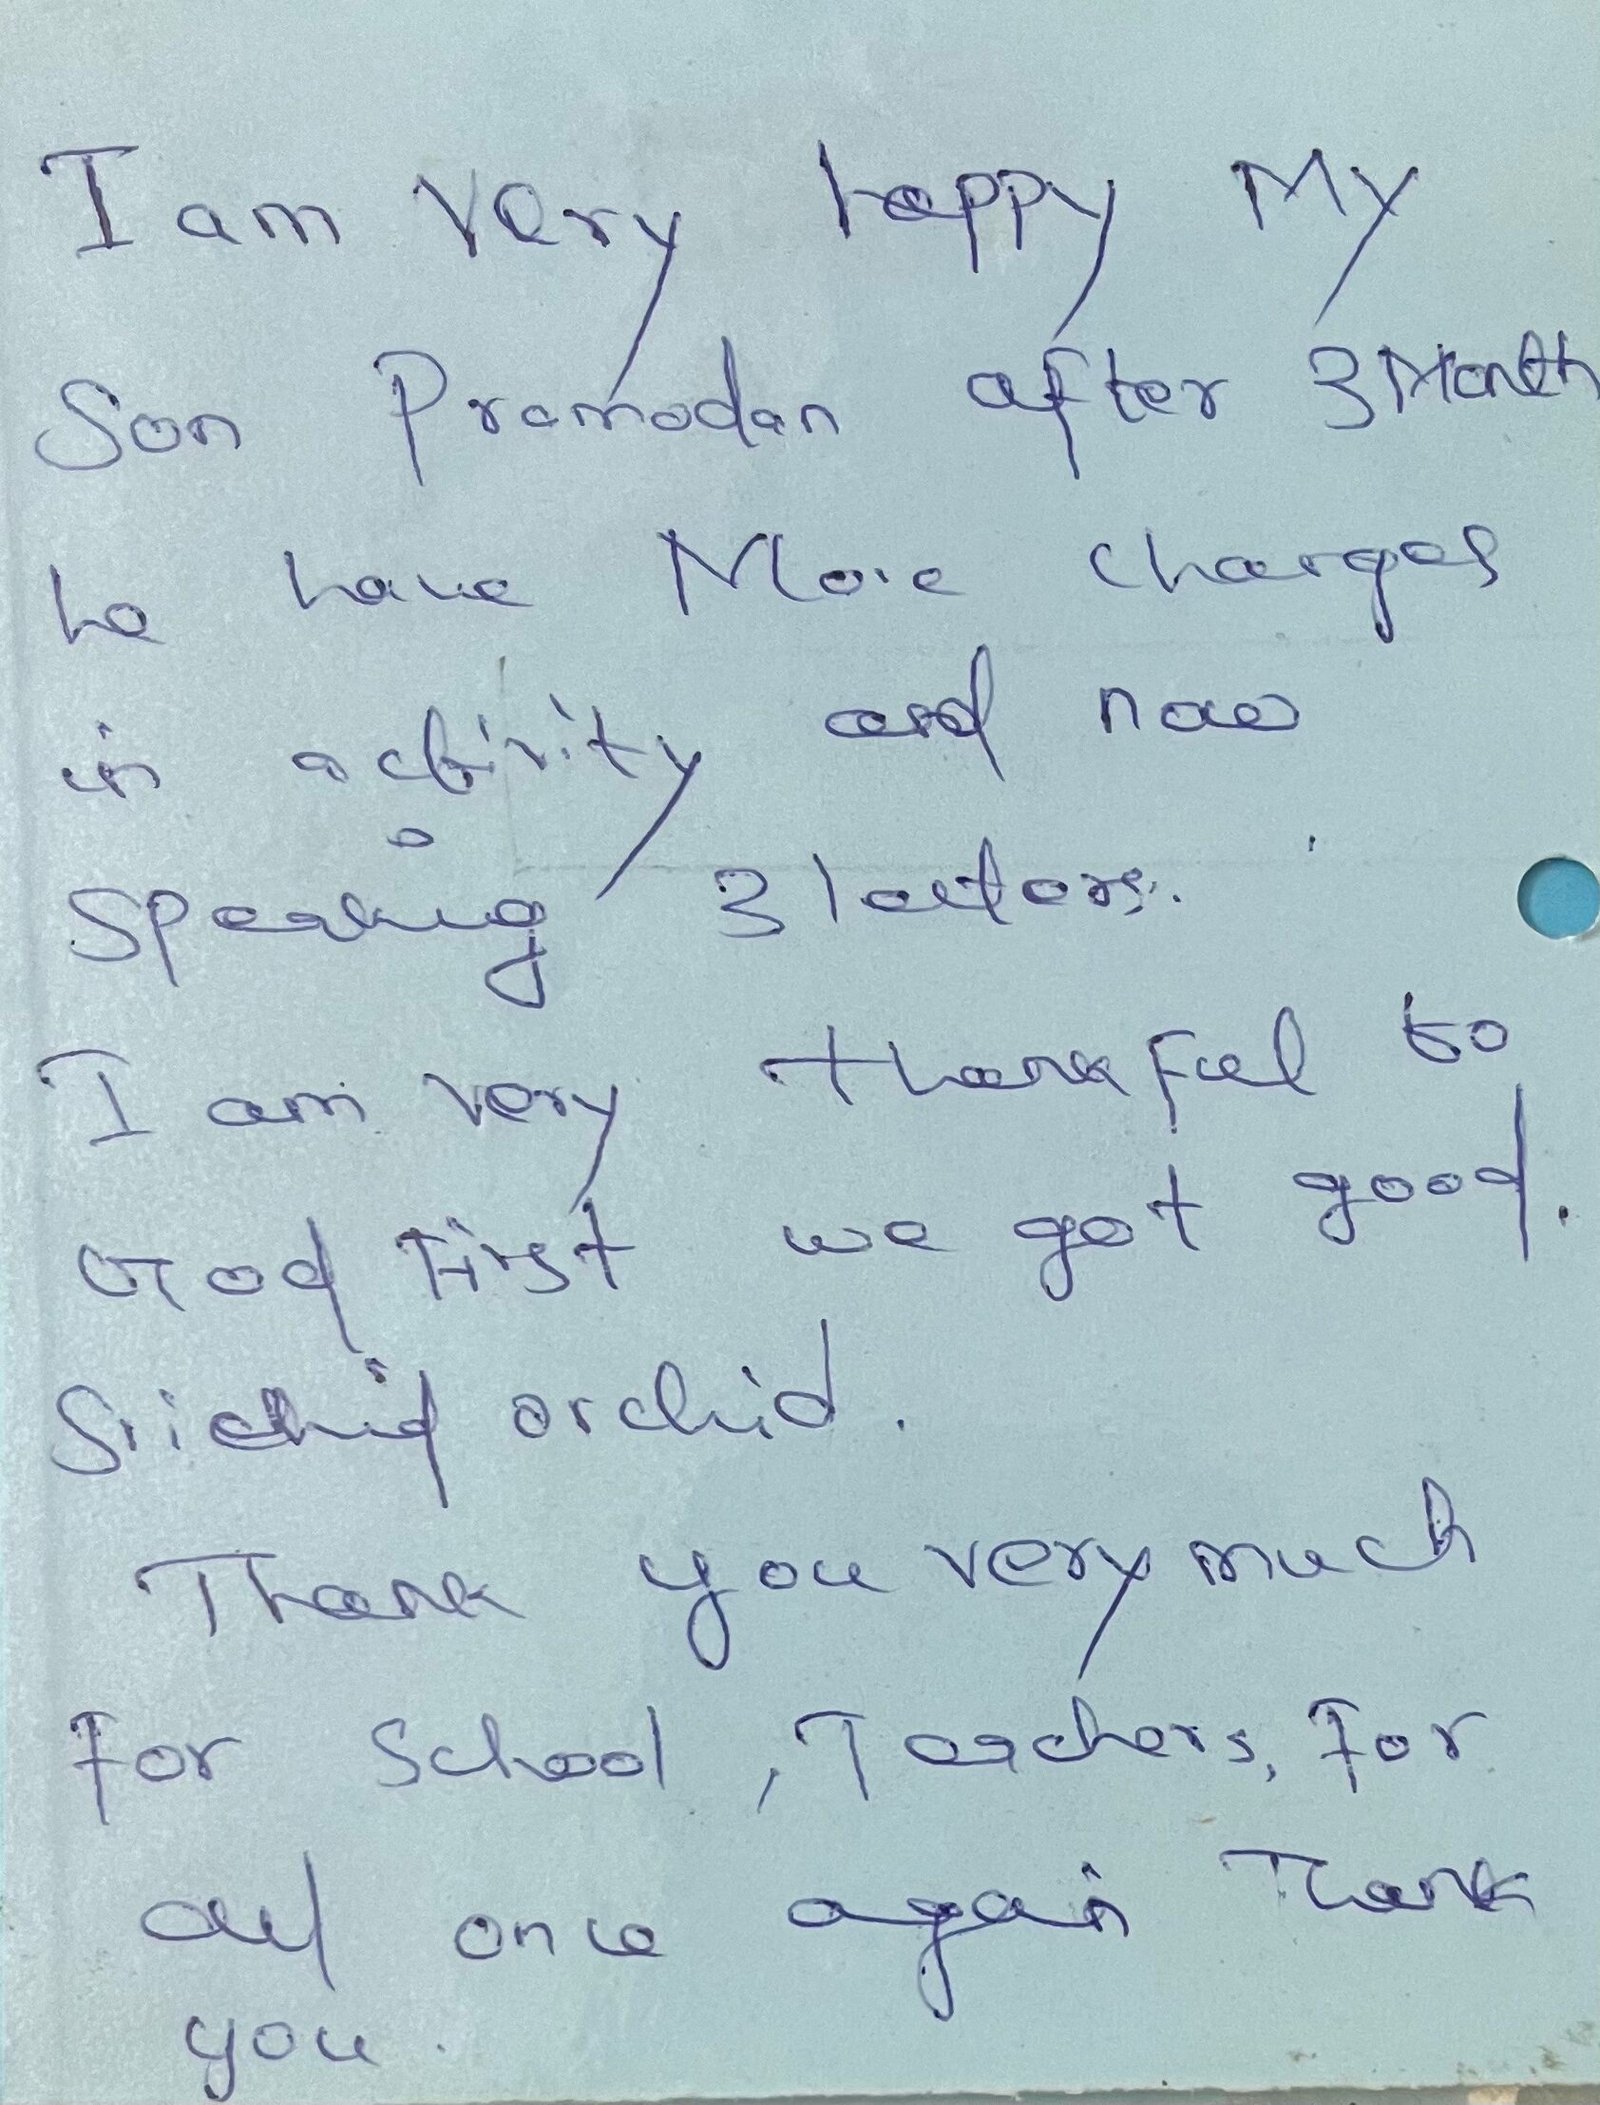 I am very happy My
Son Pramodan after 3 Month
he have More changes
in activity and now
Speaking 3 letters.
I am very thankful to
God First we got good.
Sri orchid.
Thank you very much
For School, Teachers, For
all once again Thank
you.